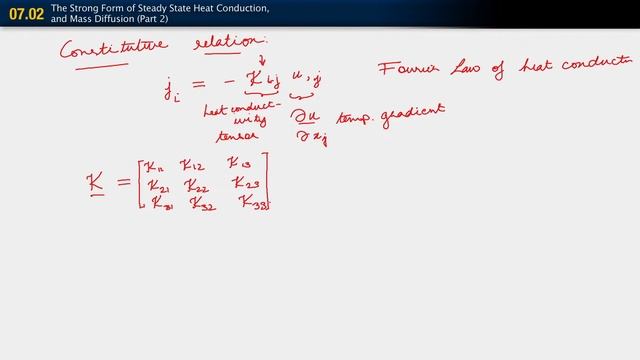 07.02
The Strong Form of Steady State Heat Conduction,
and Mass Diffusion (Part 2)
Constitutive relation:
j_i = - K_ij u,j
Fourier Law of heat conductn
heat conduct-
ivity
tensor
∂u
∂x_j
temp. gradient
K = [K11 K12 K13
K21 K22 K23
K31 K32 K33]